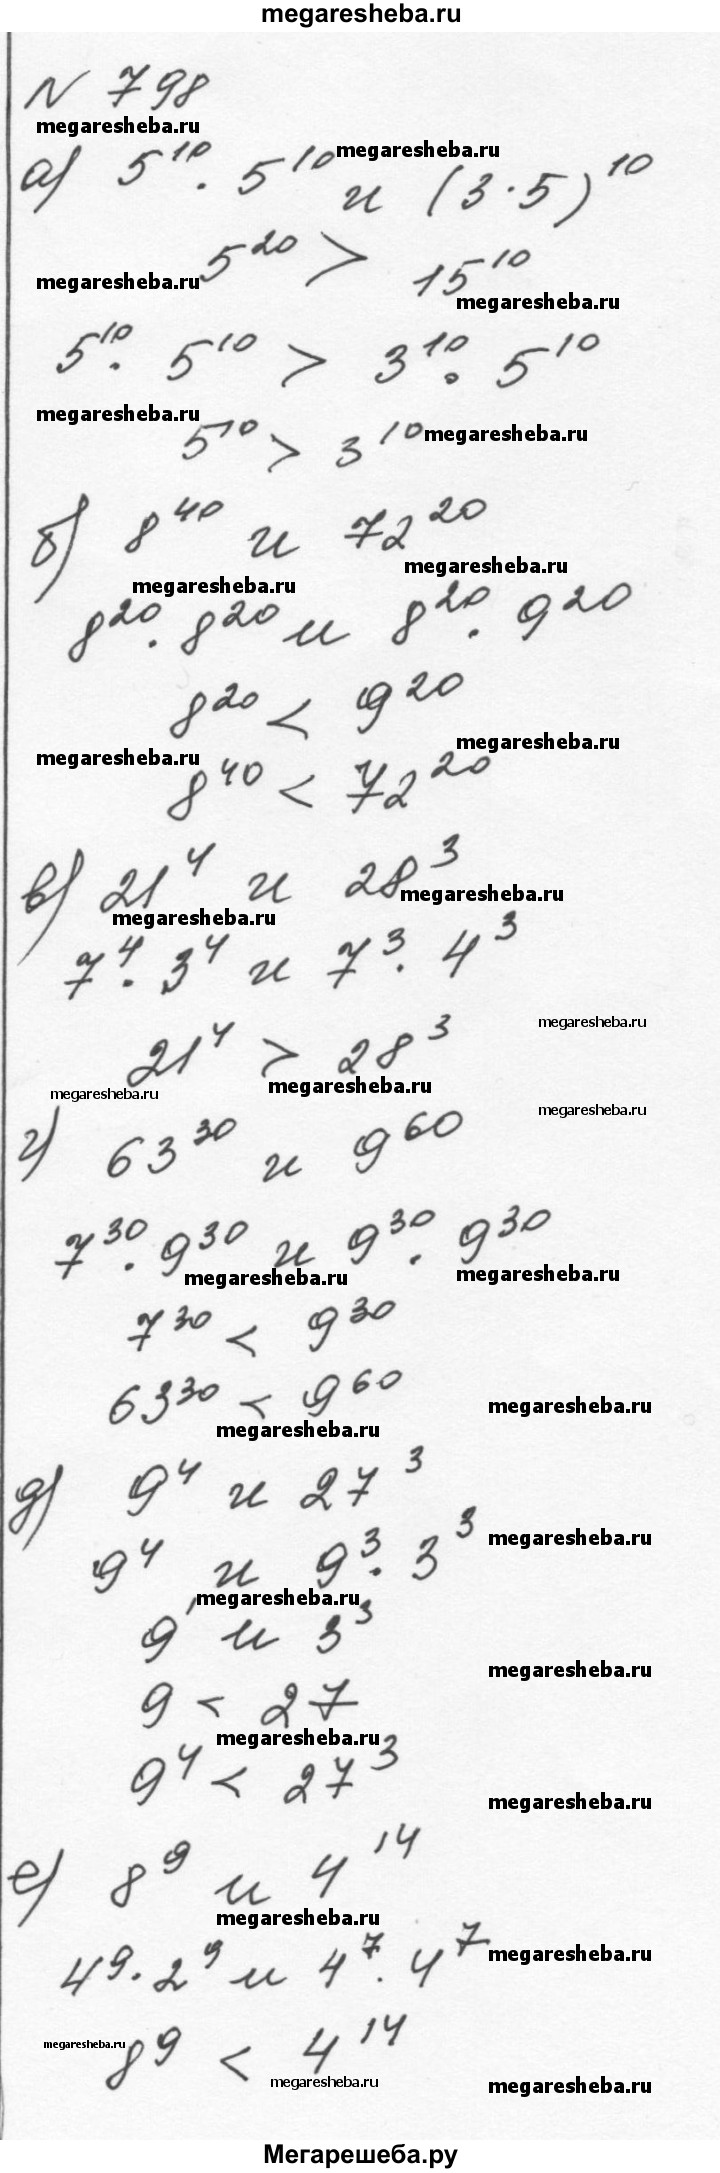 megaresheba.ru
N 798
megaresheba.ru
а) 5^10 · 5^10 и (3·5)^10
megaresheba.ru
5^20 > 15^10
megaresheba.ru
megaresheba.ru
5^10 · 5^10 > 3^10 · 5^10
megaresheba.ru
5^10 > 3^10
megaresheba.ru
б) 8^40 и 72^20
megaresheba.ru
megaresheba.ru
8^20 · 8^20 и 8^20 · 9^20
8^20 < 9^20
megaresheba.ru
megaresheba.ru
8^40 < 72^20
в) 21^4 и 28^3
megaresheba.ru
megaresheba.ru
7^4 · 3^4 и 7^3 · 4^3
megaresheba.ru
21^4 > 28^3
megaresheba.ru
megaresheba.ru
megaresheba.ru
г) 63^30 и 9^60
7^30 · 9^30 и 9^30 · 9^30
megaresheba.ru
megaresheba.ru
7^30 < 9^30
63^30 < 9^60
megaresheba.ru
megaresheba.ru
д) 9^4 и 27^3
megaresheba.ru
9^4 и 9^3 · 3^3
megaresheba.ru
9^1 и 3^3
megaresheba.ru
9 < 27
megaresheba.ru
9^4 < 27^3
megaresheba.ru
е) 8^9 и 4^14
megaresheba.ru
4^9 · 2^9 и 4^7 · 4^7
megaresheba.ru
megaresheba.ru
8^9 < 4^14
megaresheba.ru
megaresheba.ru
Мегарешеба.ру